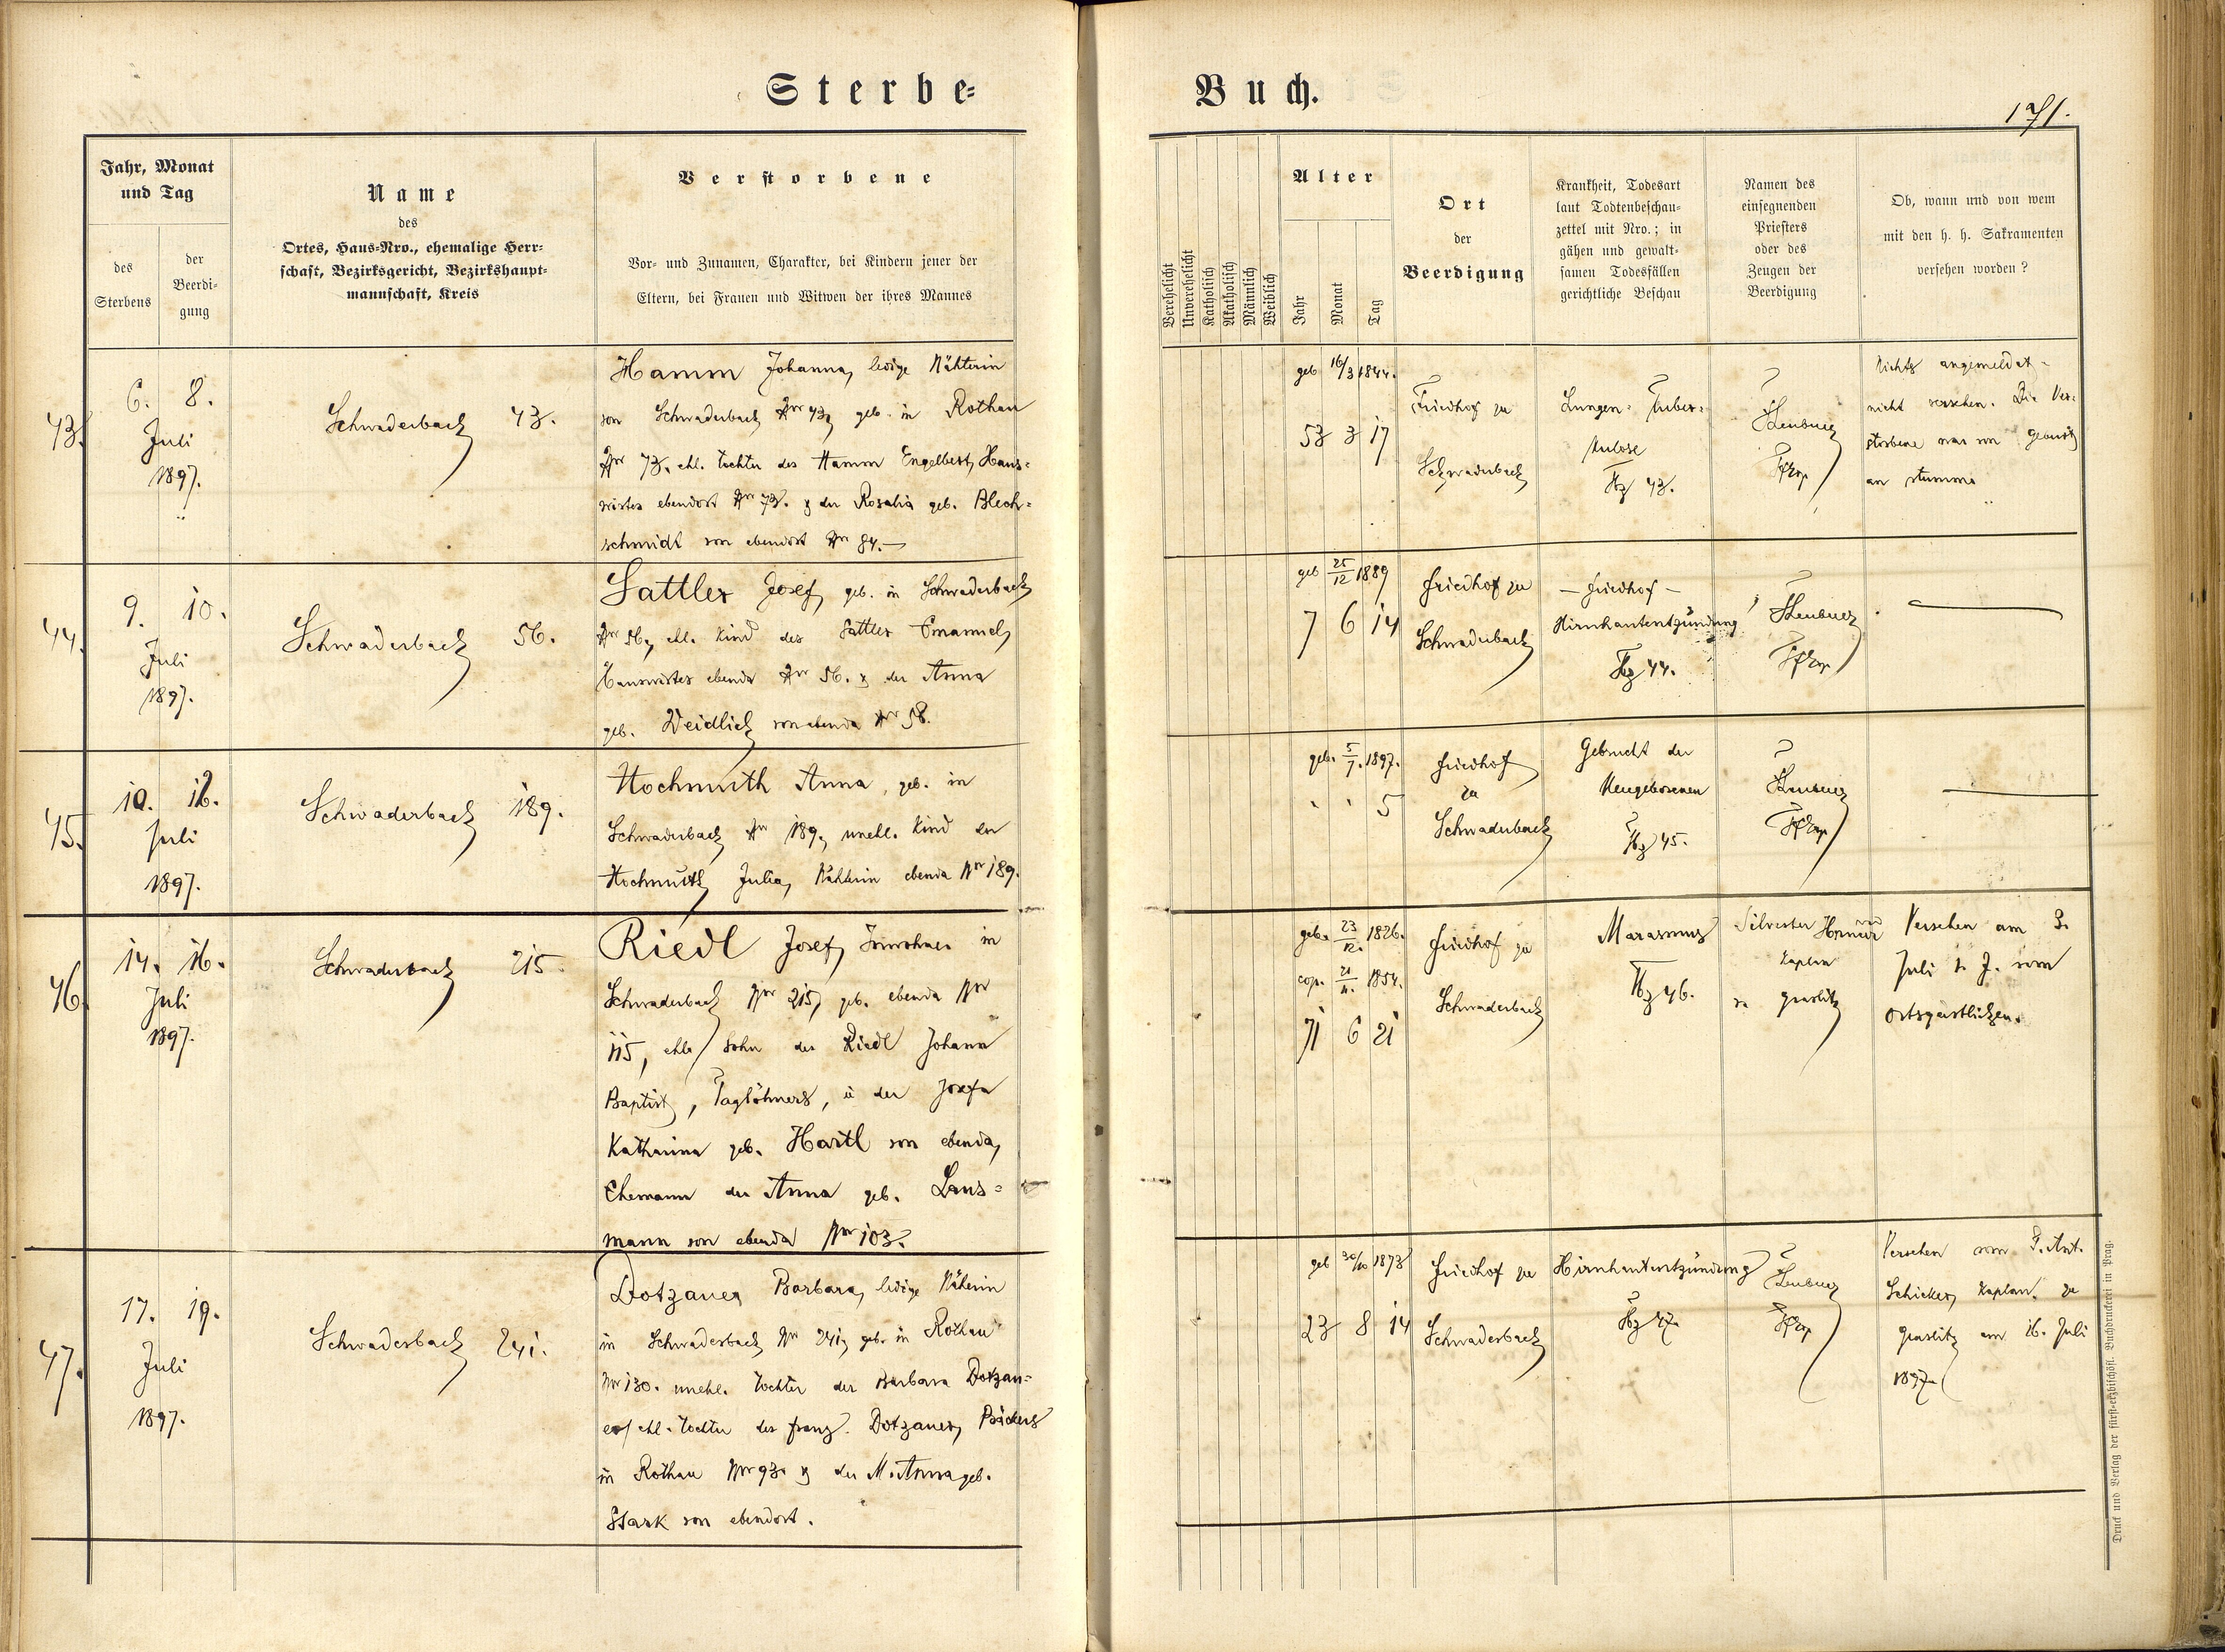 Sterbe-
Buch.
171.
Jahr, Monat
und Tag
des
Sterbens
der
Beerdi-
gung
Name
des
Ortes, Haus-Nro., ehemalige Herr-
schaft, Bezirksgericht, Bezirkshaupt-
mannschaft, Kreis
Verstorbene
Vor- und Zunamen, Charakter, bei Kindern jener der
Eltern, bei Frauen und Witwen der ihres Mannes
Verehelicht
Unverehelicht
Katholisch
Akatholisch
Männlich
Weiblich
Alter
Jahr
Monat
Tag
Ort
der
Beerdigung
Krankheit, Todesart
laut Todtenbeschau-
zettel mit Nro.; in
gähen und gewalt-
samen Todesfällen
gerichtliche Beschau
Namen des
einsegnenden
Priesters
oder des
Zeugen der
Beerdigung
Ob, wann und von wem
mit den h. h. Sakramenten
versehen worden?
43.
6. 8.
Juli
1897.
Schwaderbach 43.
Hamm Johanna, ledige Nähterin
von Schwaderbach Nr 43, geb. in Rothau
Nr 73. ehl. Tochter des Hamm Engelbert, Haus-
wirtes ebendort Nr 73. & der Rosalia geb. Blech-
schmidt von ebendort Nr 84.—
geb 16/3 1844.
53 3 17
Friedhof zu
Schwaderbach
Lungen-Tuber-
kulose
Tbz 43.
Pfrop
Nichts angemeldet -
nicht versehen. Die Ver-
storbene war von Geburt
an stumm
44.
9. 10.
Juli
1897.
Schwaderbach 56.
Sattler Josef, geb. in Schwaderbach
Nr 56, ehl. Kind des Sattler Emanuel,
Hauswirtes ebenda Nr 56. & der Anna
geb. Weidlich von ebenda Nr 58.
geb 25/12 1889
7 6 14
Friedhof zu
Schwaderbach
— Friedhof —
Hirnhautentzündung
Tbz 44.
Pfrop
45.
10. 12.
Juli
1897.
Schwaderbach 189.
Hochmuth Anna, geb. in
Schwaderbach Nr 189, unehl. Kind der
Hochmuth Julia, Nähterin ebenda Nr 189.
geb. 5/7. 1897.
" " 5
Friedhof
zu
Schwaderbach
Gebrucht der
Neugeborenen
Tbz 45.
Pfrop
46.
14. 16.
Juli
1897.
Schwaderbach 215.
Riedl Josef, Inwohner in
Schwaderbach Nr 215, geb. ebenda Nr
115, ehl. Sohn des Riedl Johann
Baptist, Taglöhners, u der Josefa
Katharina geb. Hartl von ebenda,
Ehemann der Anna geb. Lans-
mann von ebenda Nr 103.
geb. 23/12. 1826.
cop. 21/11. 1854.
71 6 21
Friedhof zu
Schwaderbach
Marasmus
Tbz 46.
Silvester
Kaplan
v. Graslitz
Versehen am 3.
Juli d. J. vom
Ortsgeistlichen.
47.
17. 19.
Juli
1897.
Schwaderbach 241.
Dotzauer Barbara, ledige Näherin
in Schwaderbach Nr 241, geb. in Rothau
Nr 130. unehl. Tochter der Barbara Dotzau-
er, ehl. Tochter des Franz Dotzauer, Bäckers
in Rothau Nr 93. & der M. Anna geb.
Stark von ebendort.
geb 30/10 1873
23 8 14
Friedhof zu
Schwaderbach
Hirnhautentzündung
Tbz 47.
Pfrop
Versehen vom P. Ant.
Schicker, Kaplan. zu
Graslitz am 16. Juli
1897.
Druck und Verlag der fürst-erzbischöfl. Buchdruckerei in Prag.